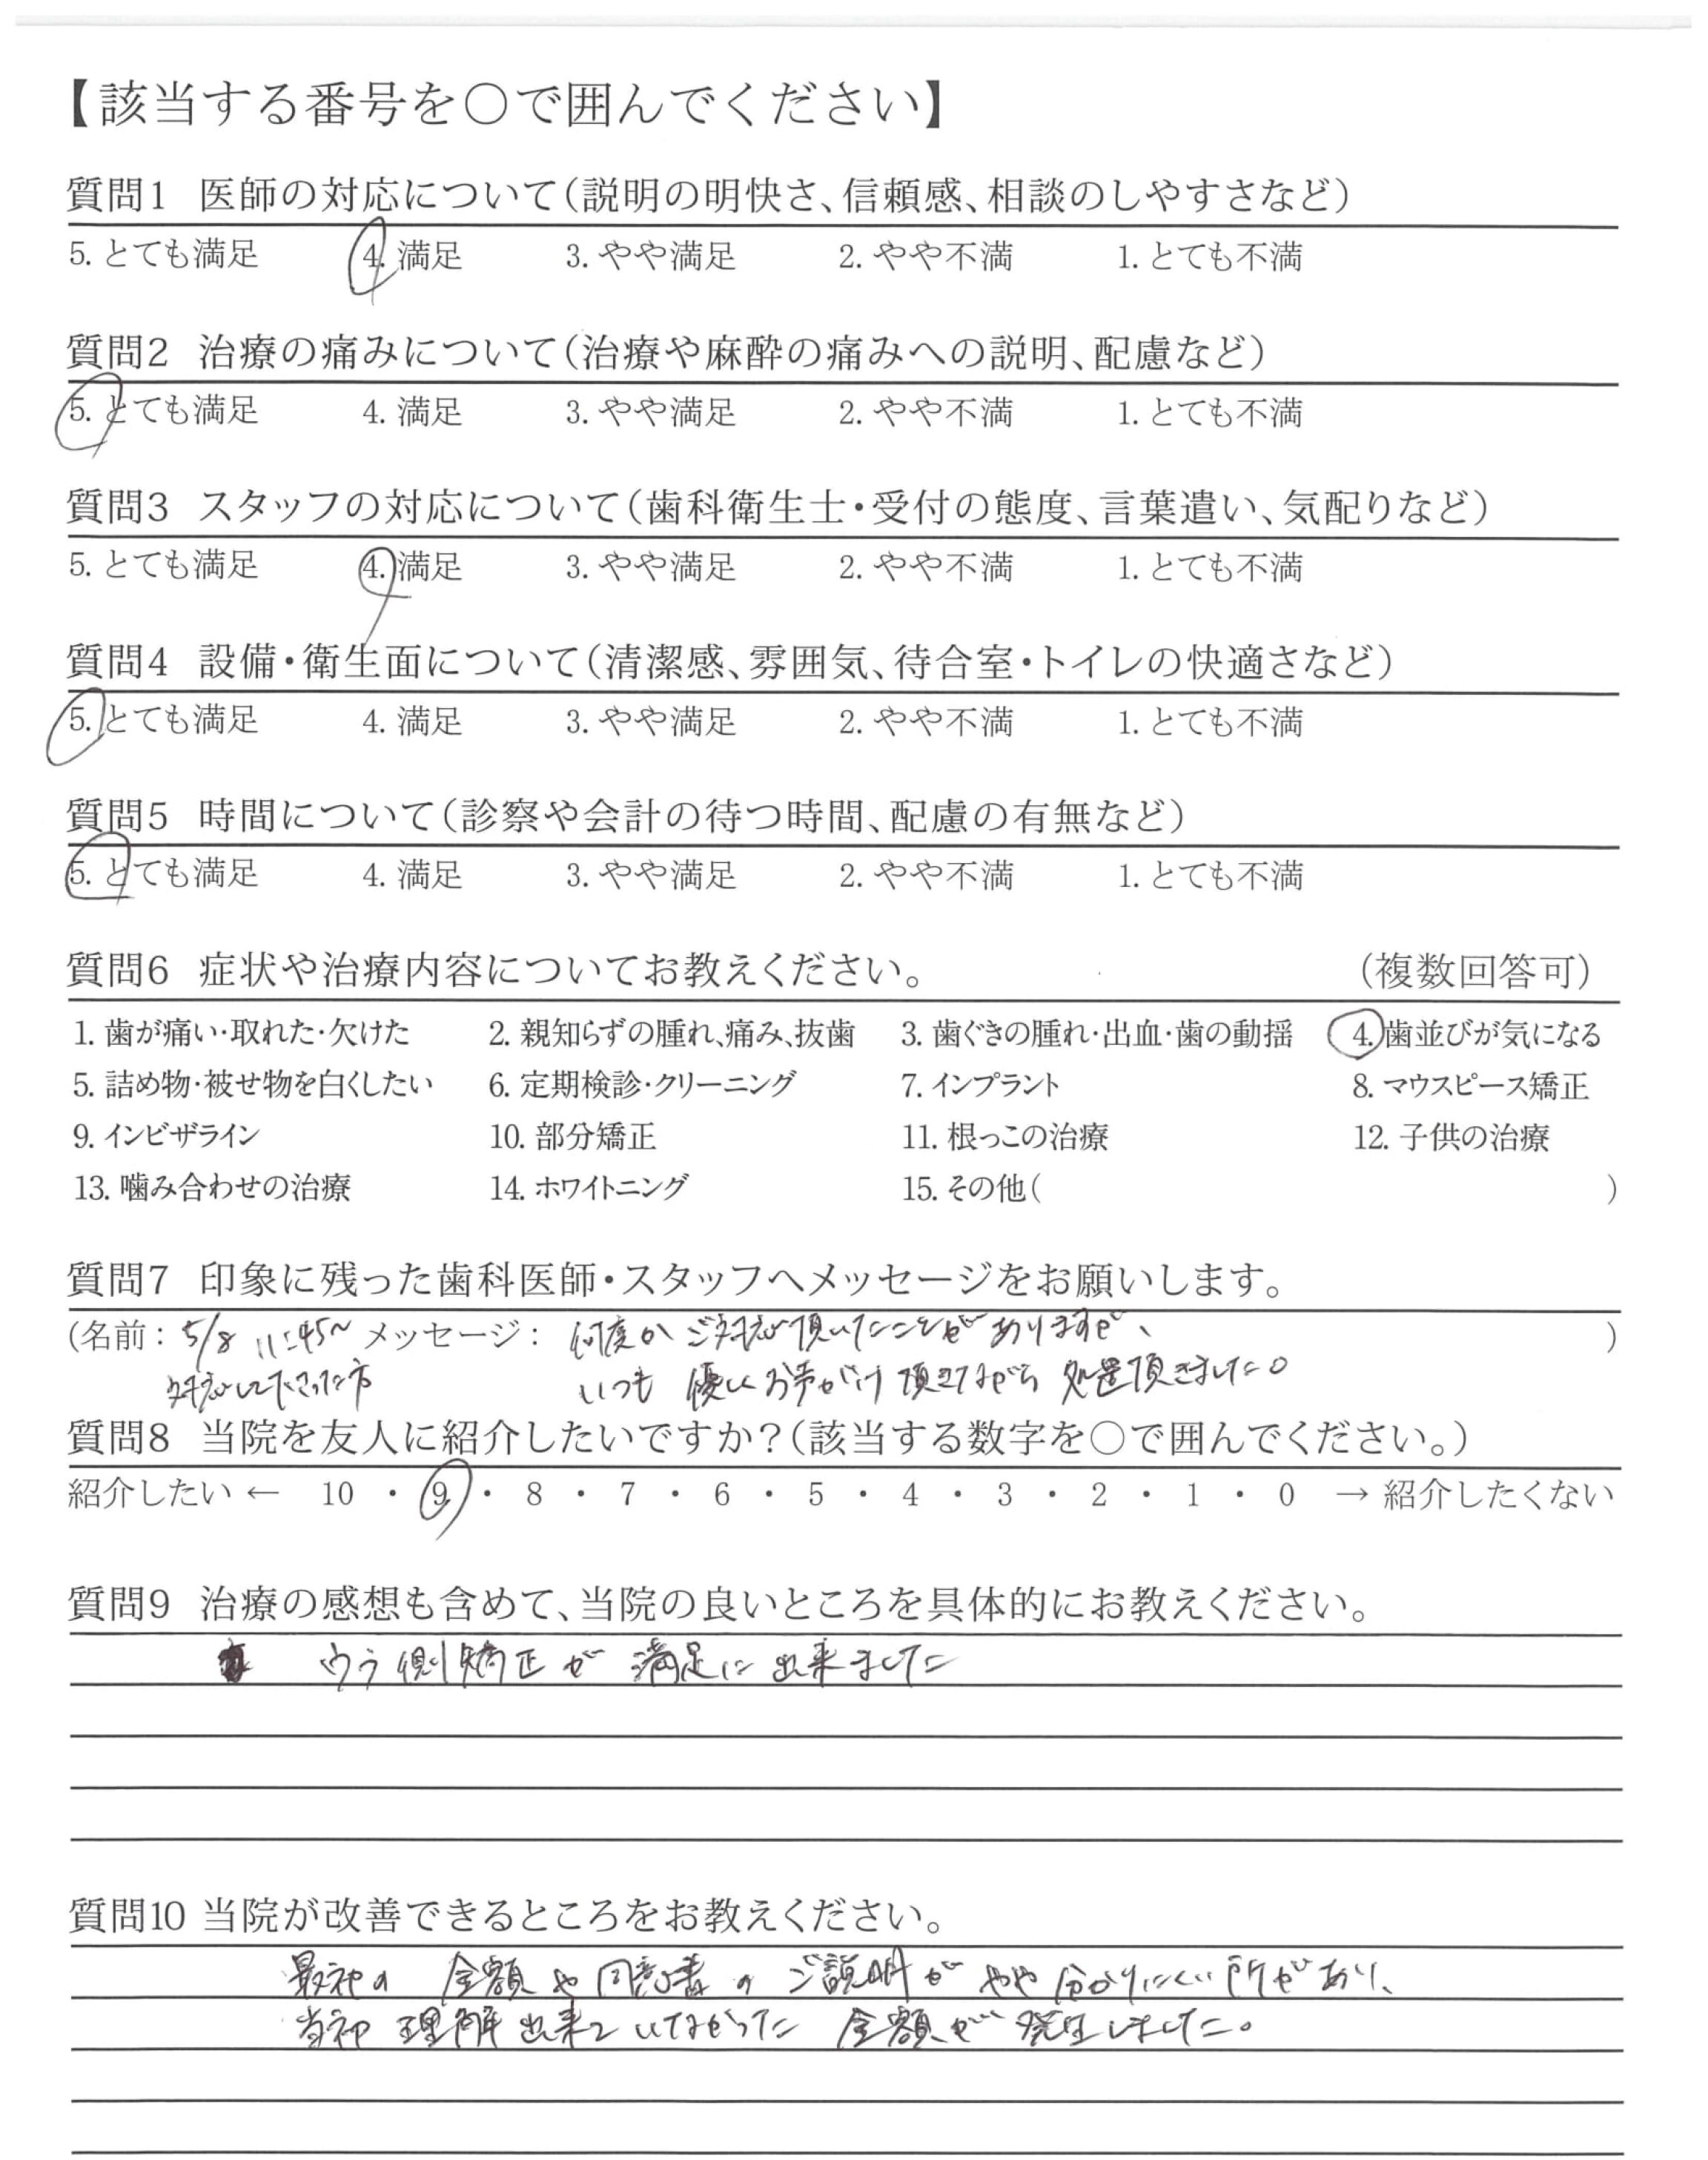 【該当する番号を○で囲んでください】
質問1 医師の対応について(説明の明快さ、信頼感、相談のしやすさなど)
5. とても満足 4. 満足 3. やや満足 2. やや不満 1. とても不満
質問2 治療の痛みについて(治療や麻酔の痛みへの説明、配慮など)
5. とても満足 4. 満足 3. やや満足 2. やや不満 1. とても不満
質問3 スタッフの対応について(歯科衛生士・受付の態度、言葉遣い、気配りなど)
5. とても満足 4. 満足 3. やや満足 2. やや不満 1. とても不満
質問4 設備・衛生面について(清潔感、雰囲気、待合室・トイレの快適さなど)
5. とても満足 4. 満足 3. やや満足 2. やや不満 1. とても不満
質問5 時間について(診察や会計の待つ時間、配慮の有無など)
5. とても満足 4. 満足 3. やや満足 2. やや不満 1. とても不満
質問6 症状や治療内容についてお教えください。 (複数回答可)
1. 歯が痛い・取れた・欠けた 2. 親知らずの腫れ、痛み、抜歯 3. 歯ぐきの腫れ・出血・歯の動揺 4. 歯並びが気になる
5. 詰め物・被せ物を白くしたい 6. 定期検診・クリーニング 7. インプラント 8. マウスピース矯正
9. インビザライン 10. 部分矯正 11. 根っこの治療 12. 子供の治療
13. 噛み合わせの治療 14. ホワイトニング 15. その他( )
質問7 印象に残った歯科医師・スタッフへメッセージをお願いします。
(名前: 5/8 11:45~ メッセージ: 何度か ご対応頂いたことがありますが、 )
対応して下さった方 いつも 優しくお声がけ頂きながら 処置頂きました。
質問8 当院を友人に紹介したいですか?(該当する数字を○で囲んでください。)
紹介したい ← 10 ・ 9 ・ 8 ・ 7 ・ 6 ・ 5 ・ 4 ・ 3 ・ 2 ・ 1 ・ 0 → 紹介したくない
質問9 治療の感想も含めて、当院の良いところを具体的にお教えください。
ウラ側矯正が 満足に 出来ました
質問10 当院が改善できるところをお教えください。
最初の 金額や同意書の ご説明が やや 分かりにくい所があり、
当初 理解出来ていなかった 金額が 発生しました。